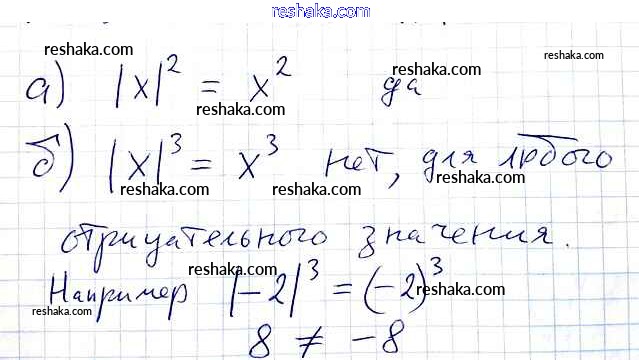 reshaka.com
reshaka.com reshaka.com
а) |x|² = x² да
reshaka.com reshaka.com
reshaka.com
б) |x|³ = x³ нет, для любого
reshaka.com reshaka.com reshaka.com
отрицательного значения.
reshaka.com
Например |-2|³ = (-2)³
reshaka.com reshaka.com
reshaka.com
8 ≠ -8
reshaka.com reshaka.com